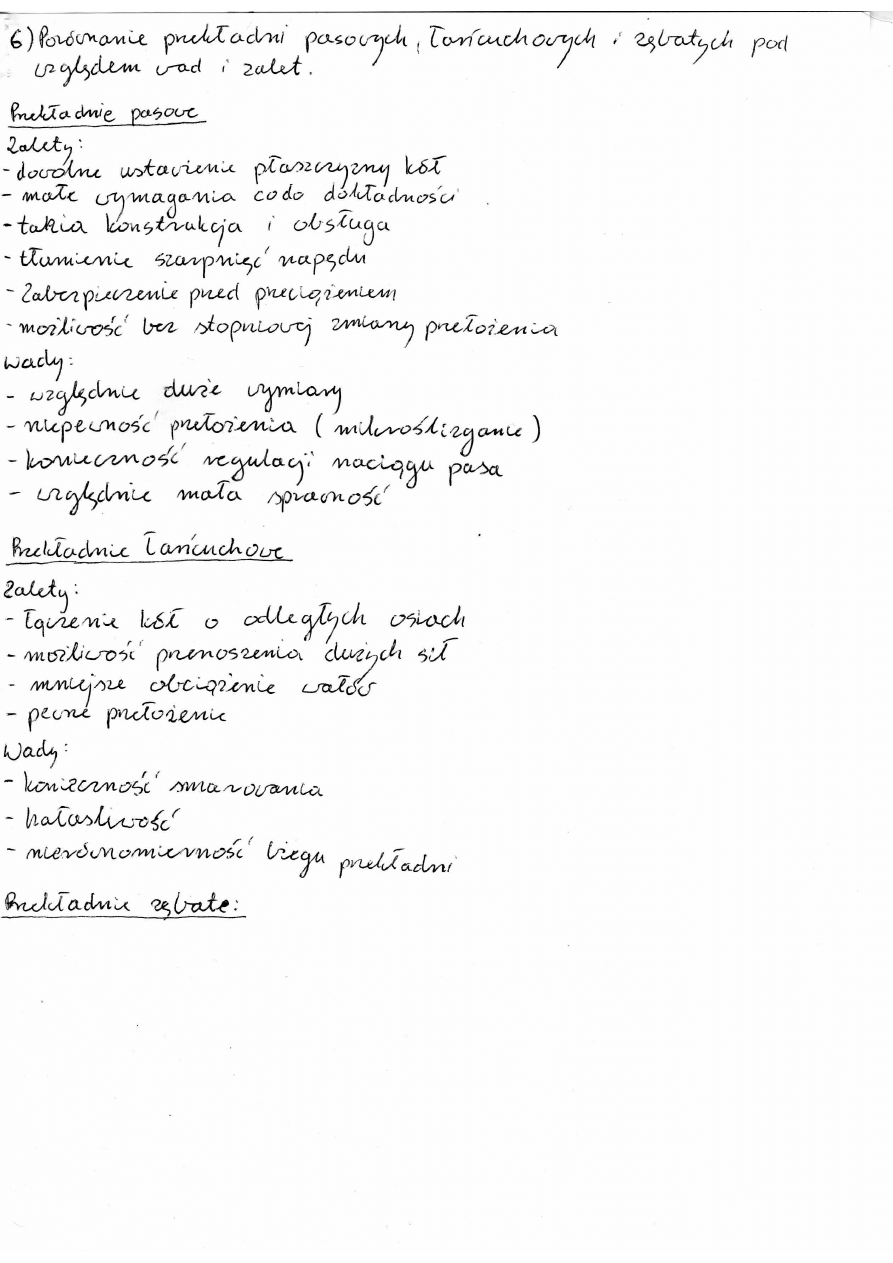 6) Porównanie przekładni pasowych, łańcuchowych i zębatych pod
względem wad i zalet.
Przekładnie pasowe
Zalety:
- dowolne ustawienie płaszczyzny kół
- małe wymagania co do dokładności
- tania konstrukcja i obsługa
- tłumienie szarpnięć napędu
- Zabezpieczenie przed przeciążeniem
- możliwość bez stopniowej zmiany przełożenia
Wady:
- względnie duże wymiary
- niepewność przełożenia (mikroślizganie)
- konieczność regulacji naciągu pasa
- względnie mała sprawność
Przekładnie łańcuchowe
Zalety:
- łączenie kół o odległych osiach
- możliwość przenoszenia dużych sił
- mniejsze obciążenie wałów
- pewne przełożenie
Wady:
- konieczność smarowania
- hałasliwość
- nierównomierność biegu przekładni
Przekładnie zębate: